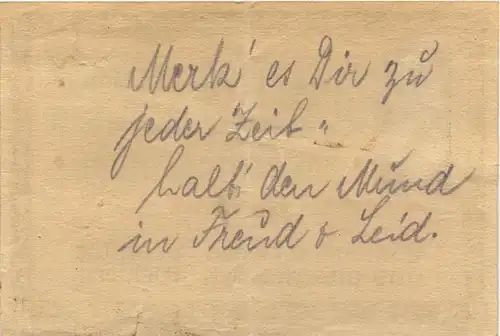 Merk' es Dir zu
jeder Zeit "
halt' den Mund
in Freud u Leid.